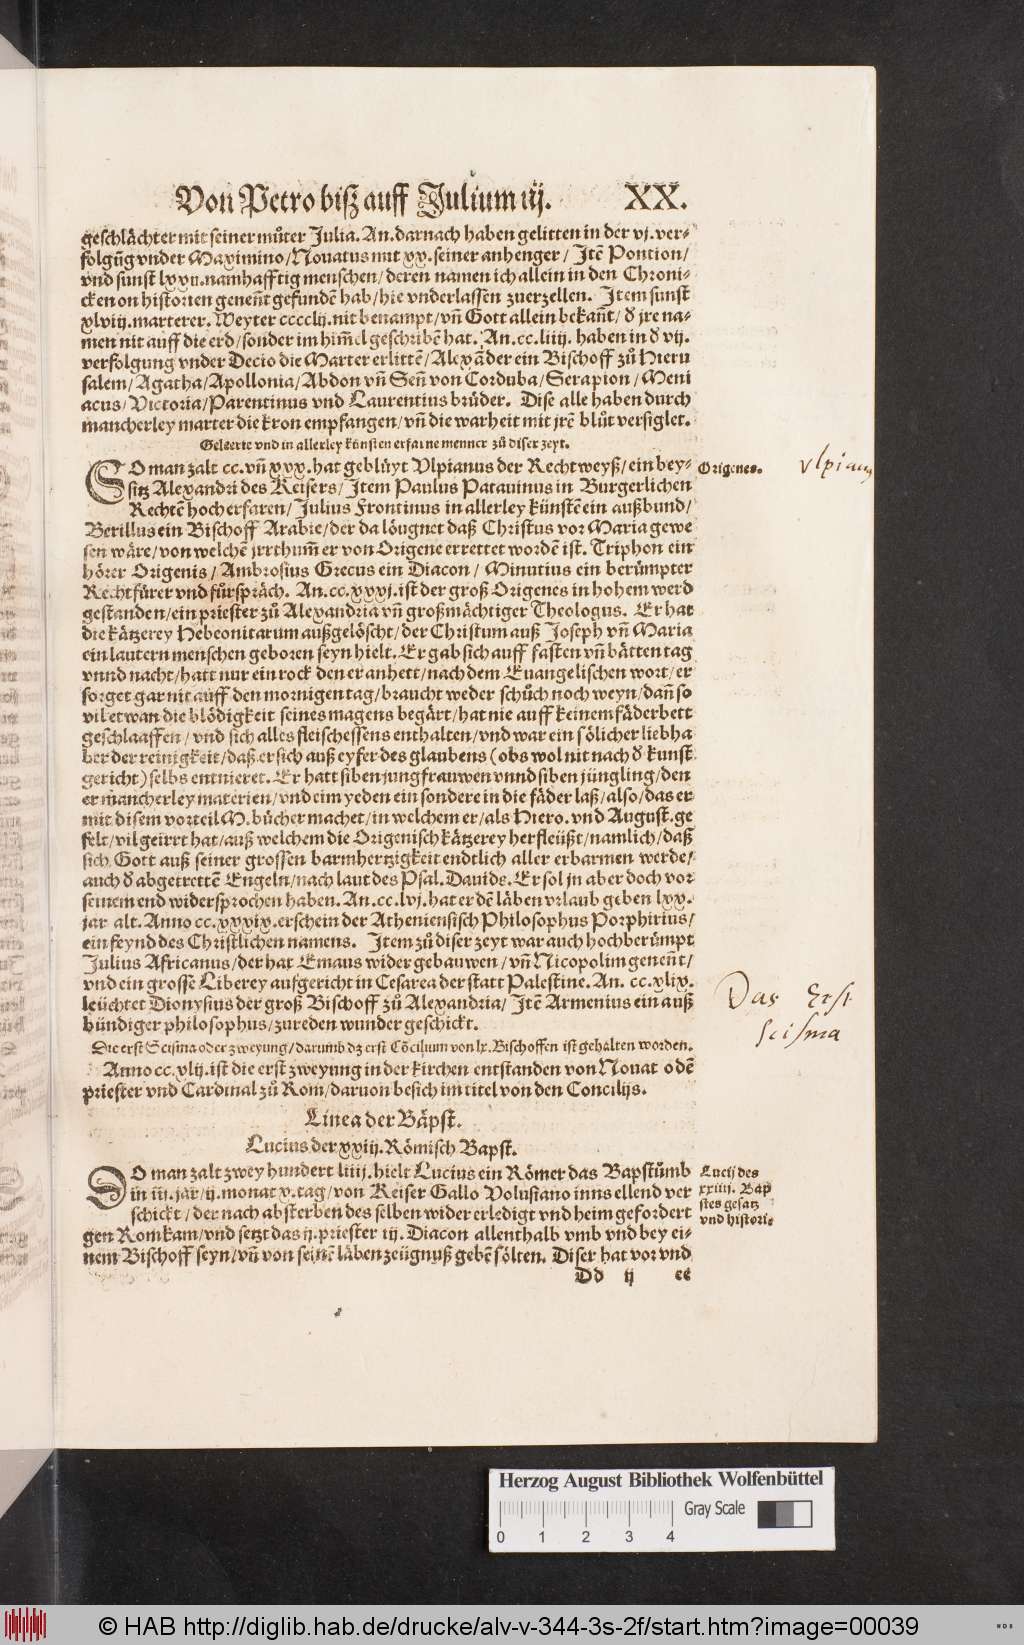 Von Petro biß auff Julium iij. XX.
geschlächter mit seiner můter Julia. An. darnach haben gelitten in der vj. ver-
folgũg vnder Maximino/Nouatus mit xx. seiner anhenger/ Jtẽ Pontion/
vnd sunst lxxij. namhafftig menschen/deren namen ich allein in den Chroni-
cken on historien genent̃ gefundẽ hab/hie vnderlassen zuerzellen. Jtem sunst
xlviij. marterer. Weyter cccclij. nit benampt/vñ Gott allein bekañt/ď jre na-
men nit auff die erd/sonder im him̃el geschribẽ hat. An. cc. liiij. haben in ď vij.
verfolgung vnder Decio die Marter erlittẽ/Alexãder ein Bischoff zů Hieru
salem/Agatha/Apollonia/Abdon vñ Señ von Corduba/Serapion/Meni
acus/Victoria/Parentinus vnd Laurentius brüder. Dise alle haben durch
mancherley marter die kron empfangen/vñ die warheit mit jrẽ blůt versiglet.
Geleerte vnd in allerley künsten erfarne menner zů diser zeyt.
SO man zalt cc. vñ xxx. hat geblüyt Vlpianus der Rechtweyß/ein bey-
sitz Alexandri des Keisers/Jtem Paulus Patauinus in Burgerlichen
Rechtẽ hoch erfaren/Julius Frontinus in allerley künstẽ ein außbund/
Berillus ein Bischoff Arabie/der da löugnet daß Christus vor Maria gewe
sen wäre/von welchẽ jrrthum̃ er von Origene errettet wordẽ ist. Triphon ein
hörer Origenis/Ambrosius Grecus ein Diacon/Minutius ein berümpter
Rechtfürer vnd fürspräch. An. cc. xxxj. ist der groß Origenes in hohem werd
gestanden/ein priester zů Alexandria vñ großmächtiger Theologus. Er hat
die kätzerey Hebeonitarum außgelöscht/der Christum auß Joseph vñ Maria
ein lautern menschen geboren seyn hielt. Er gab sich auff fasten vñ bätten tag
vnnd nacht/hatt nur ein rock den er anhett/nach dem Euangelischen wort/er
sorget gar nit auff den mornigen tag/braucht weder schůch noch weyn/dañ so
vil etwan die blödigkeit seines magens begärt/hat nie auff keinem fäderbett
geschlaaffen/vnd sich alles fleischessens enthalten/vnd war ein sölicher liebha
ber der reinigkeit/daß er sich auß eyfer des glaubens (obs wol nit nach ď kunst
gericht) selbs entnieret. Er hatt siben jungfrauwen vnnd siben jüngling/den
er mancherley materien/vnd eim yeden ein sondere in die fäder laß/also/das er
mit disem vorteil M. bücher machet/in welchem er/als Hiero. vnd August. ge
felt/vil geirrt hat/auß welchem die Origenisch kätzerey herfleüßt/namlich/daß
sich Gott auß seiner grossen barmhertzigkeit endtlich aller erbarmen werde/
auch ď abgetrettẽ Engeln/nach laut des Psal. Dauids. Er sol jn aber doch vor
seinem end widersprochen haben. An. cc. lvj. hat er dẽ läben vrlaub geben lxx.
jar alt. Anno cc. xxxix. erschein der Atheniensisch Philosophus Porphirius/
ein feynd des Christlichen namens. Jtem zů diser zeyt war auch hochberümpt
Julius Africanus/der hat Emaus wider gebauwen/vñ Nicopolim geneñt/
vnd ein grossẽ Liberey aufgericht in Cesarea der statt Palestine. An. cc. xlix.
leüchtet Dionysius der groß Bischoff zů Alexandria/Jtẽ Armenius ein auß
bündiger philosophus/zureden wunder geschickt.
Die erst Scisma oder zweyung/darumb dz erst Cõcilium von lx. Bischoffen ist gehalten worden.
Anno cc. xlij. ist die erst zweyung in der kirchen entstanden von Nouat o dẽ
priester vnd Cardinal zů Rom/daruon besich im titel von den Concilijs.
Linea der Bäpst.
Lucius der xxiij. Römisch Bapst.
DO man zalt zwey hundert liiij. hielt Lucius ein Römer das Bapstůmb
in iij. jar/ij. monat v. tag/von Keiser Gallo Volusiano inns ellend ver
schickt/der nach absterben des selben wider erledigt vnd heim gefordert
gen Rom kam/vnd setzt das ij. priester iij. Diacon allenthalb vmb vnd bey ei-
nem Bischoff seyn/vñ von seinẽ läben zeügnuß gebẽ sölten. Diser hat vor vnd
Dd ij ee
Origenes.
Vlpianus
Das Erst
scisma
Lucij des
xxiiij. Bap
stes gesatz
vnd historie
Herzog August Bibliothek Wolfenbüttel
Gray Scale
0 1 2 3 4
© HAB http://diglib.hab.de/drucke/alv-v-344-3s-2f/start.htm?image=00039